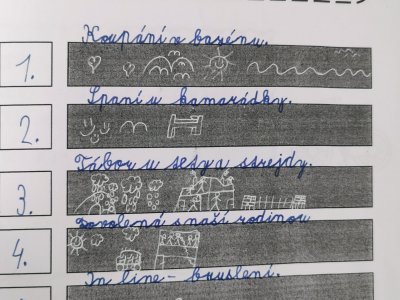 Koupání v bazénu.
1.
Spaní u kamarádky.
2.
Tábor u tety a strejdy.
3.
Dovolená s naší rodinou
4.
In line - bruslení.